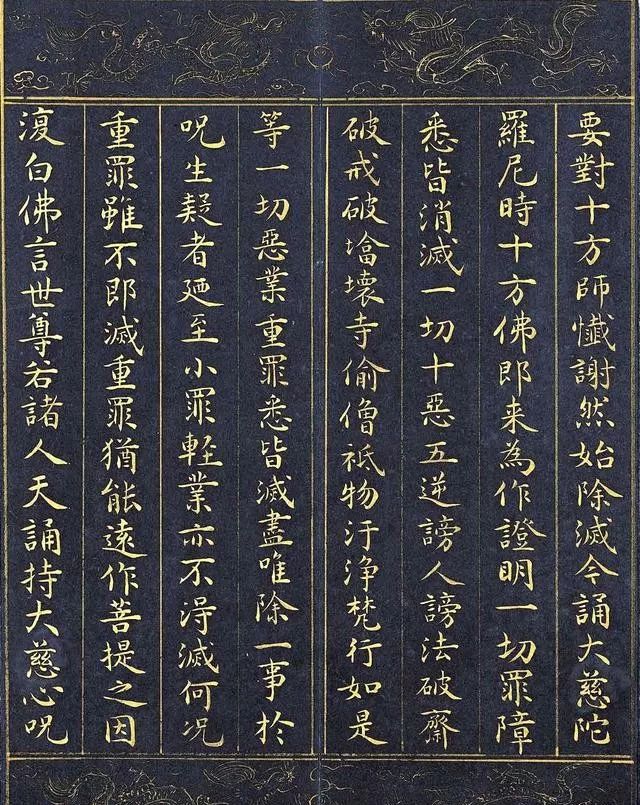 要對十方師懺謝然始除滅今誦大慈陀
羅尼時十方佛即来為作證明一切罪障
悉皆消滅一切十惡五逆謗人謗法破齋
破戒破塔壞寺偷僧祇物汙浄梵行如是
等一切惡業重罪悉皆滅盡唯除一事於
呪生疑者廼至小罪輕業亦不淂滅何况
重罪雖不即滅重罪猶能遠作菩提之因
復白佛言世尊若諸人天誦持大慈心呪